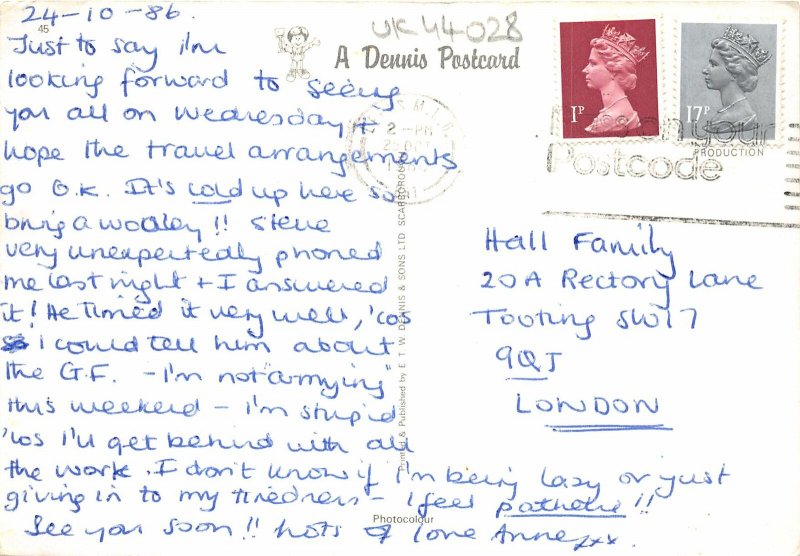 24-10-86.
45
UK44028
A Dennis Postcard
1P
17P
Just to say i'm
looking forward to seeing
you all on Wednesday +
hope the travel arrangements
go O.K. It's cold up here so
bring a wooley!! Steve
very unexpectedly phoned
me last night + I answered
it! He timed it very well, 'cos
I could tell him about
the G.F. - I'm not "armying"
this weekend - I'm stupid
'cos I'll get behind with all
the work. I don't know if I'm being lazy or just
giving in to my tiredness - I feel pathetic!!
See you soon!! Lots of love Anne xxx.
2 - PM
on your
Postcode
PRODUCTION
Hall Family
20A Rectory Lane
Tooting SW17
9QJ
LONDON
Printed & Published by E T W DENNIS & SONS LTD SCARBOROUGH
Photocolour